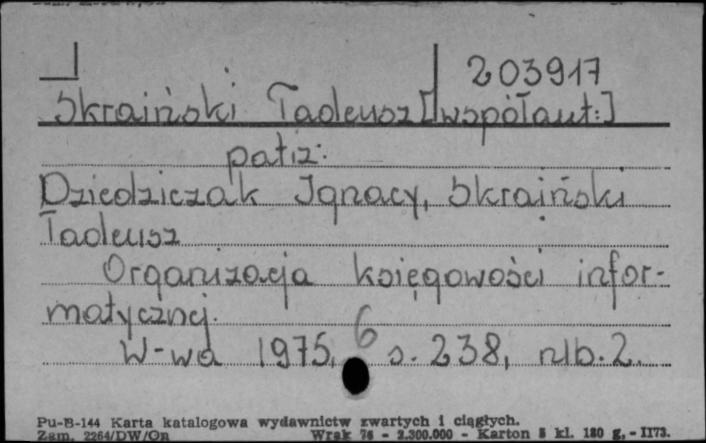 203917
Skraiński Tadeusz [współaut.:]
patrz:
Dziedziczak Ignacy, Skraiński
Tadeusz
Organizacja księgowości infor-
matycznej.
W-wa 1975, 6 s. 238, nlb. 2.
Pu-B-144 Karta katalogowa wydawnictw zwartych i ciągłych.
Zam. 2264/DW/On Wrak 76 - 2.300.000 - Karton 5 kl. 180 g. - II73.